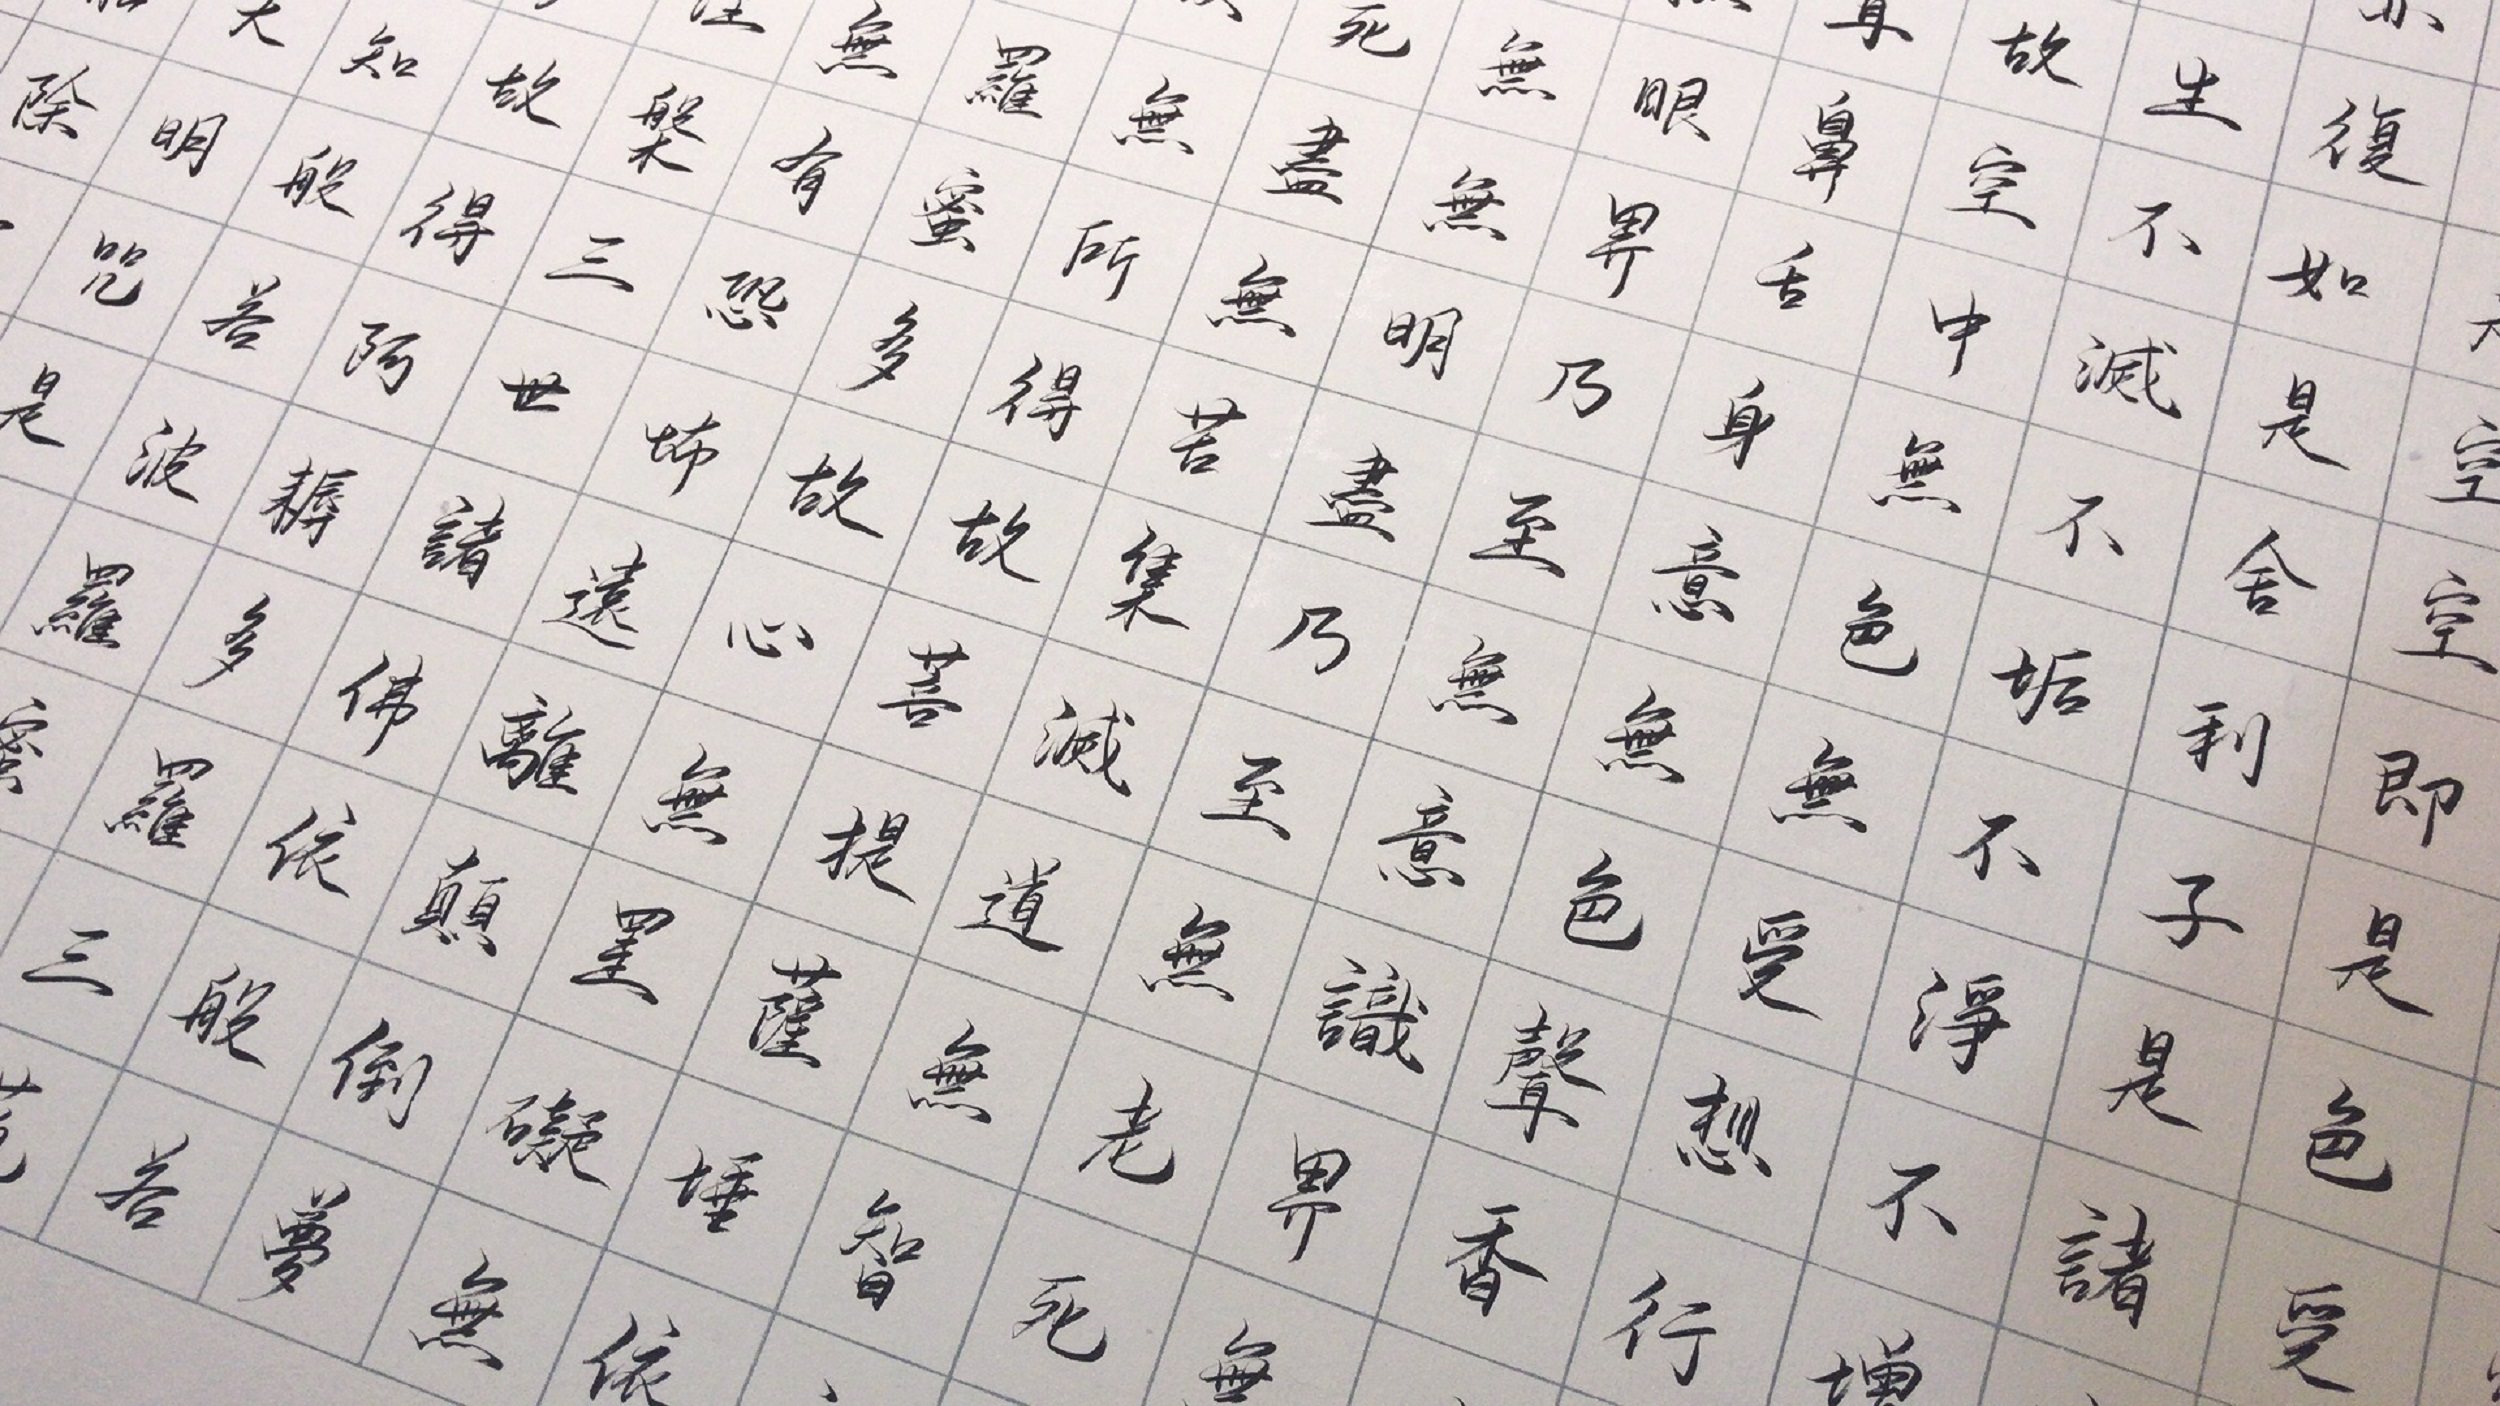 是空空即是色受
亦復如是舍利子是諸
生不滅不垢不淨不增
故空中無色無受想行
耳鼻舌身意無色聲香
眼界乃至無意識界無
無無明盡乃至無老死
死盡無苦集滅道無智
無所得故菩提薩埵依
羅蜜多故心無罣礙無
無有恐怖遠離顛倒夢
涅槃三世諸佛依般若
故得阿耨多羅三藐
知般若波羅蜜
大明咒是
除